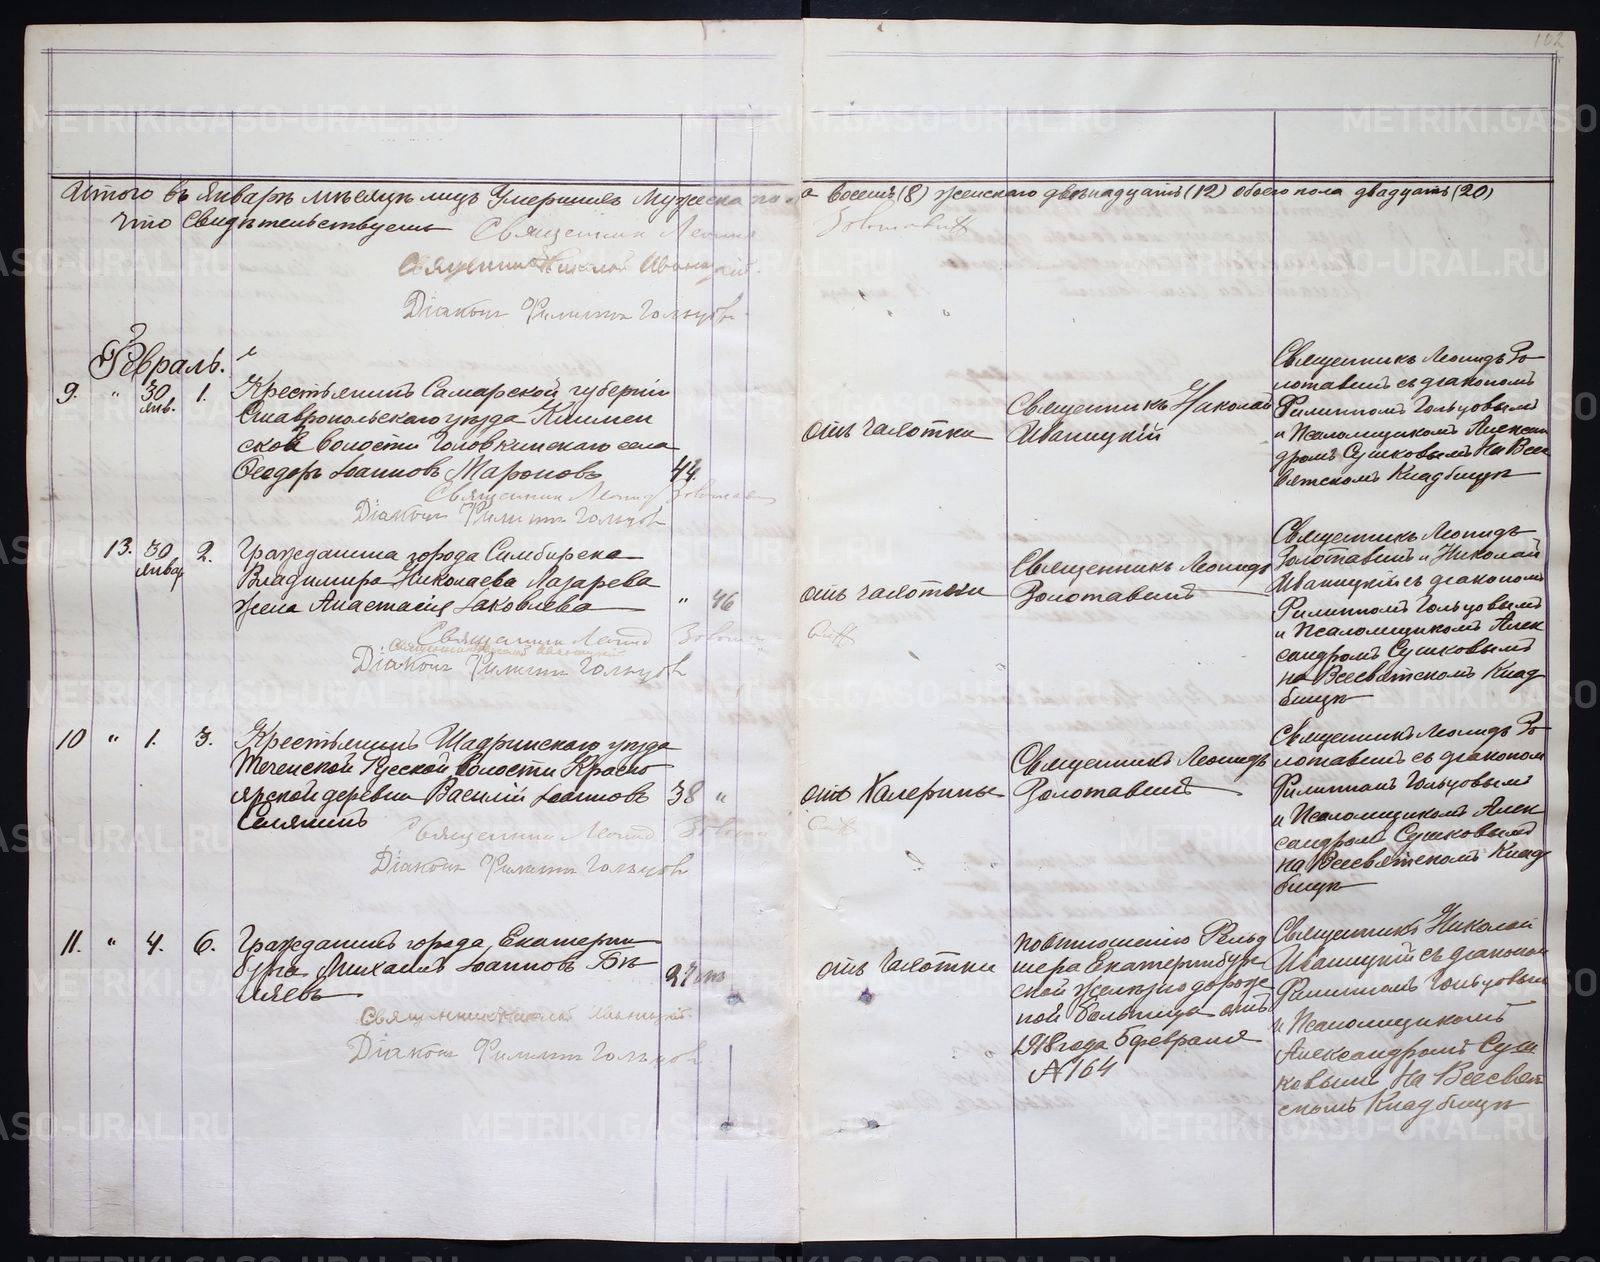 102
Итого въ Январѣ мѣсяцѣ лицъ Умершихъ Мужеска по-
а восемь (8) женскаго двѣнадцать (12) обоего пола двадцать (20)
Что свидѣтельствуемъ Священник Леонид Золотавин
Священник Николай Иваницкій.
Діаконъ Филиппъ Гольцовъ
Февраль.
9. " 30 янв. 1.
Крестьянинъ Самарской губерніи
Ставропольскаго уѣзда
ской волости Головкинскаго села
Ѳеодоръ Іоанновъ Мароновъ
42.
отъ чахотки
Священникъ Николай
Иваницкій
Священникъ Леонидъ Зо-
лотавинъ съ діакономъ
Филиппомъ Гольцовымъ
и Псаломщикомъ Алексан
дромъ Сушковымъ На Все
святскомъ Кладбищѣ
Священник Леонид Золотавин
Діаконъ Филиппъ Гольцовъ
13. 30 январ 2.
Гражданина города Симбирска
Владимира Николаева Лазарева
жена Анастасія Іаковлева
" 46
отъ чахотки
Священникъ Леонидъ
Золотавинъ
Священникъ Леонидъ
Золотавинъ и Николай
Иваницкій съ діакономъ
Филиппомъ Гольцовымъ
и Псаломщикомъ Алек
сандромъ Сушковымъ
на Всесвятскомъ Клад
бищѣ
Священник Леонид Золотавин
Священник Николай Иваницкій
Діаконъ Филиппъ Гольцовъ
10 " 1. 3.
Крестьянинъ Шадринскаго уѣзда
Теченской Русской волости Красно
ярской деревни Василій Іоанновъ
Селянинъ
38 "
отъ Халерины
Священникъ Леонидъ
Золотавинъ
Священникъ Леонидъ Зо-
лотавинъ съ діакономъ
Филиппомъ Гольцовымъ
и Псаломщикомъ Алек
сандромъ Сушковымъ
на Всесвятскомъ Клад
бищѣ
Священник Леонид Золотавин
Діаконъ Филиппъ Гольцовъ
11. " 4. 6.
Гражданинъ города Екатерин
бурга Михаилъ Іоанновъ Бѣ
ляевъ
27 лѣт
отъ Чахотки
По отношенію Фельд
шера Екатеринбург
ской желѣзно дорож
ной больницы отъ
1918 года 5 февраля
№ 164
Священникъ Николай
Иваницкій съ діакономъ
Филиппомъ Гольцовым
и Псаломщикомъ
Александромъ Суш
ковымъ На Всесвят
скомъ Кладбищѣ
Священник Николай Иваницкій.
Діаконъ Филиппъ Гольцовъ
METRIKI.GASO-URAL.RU